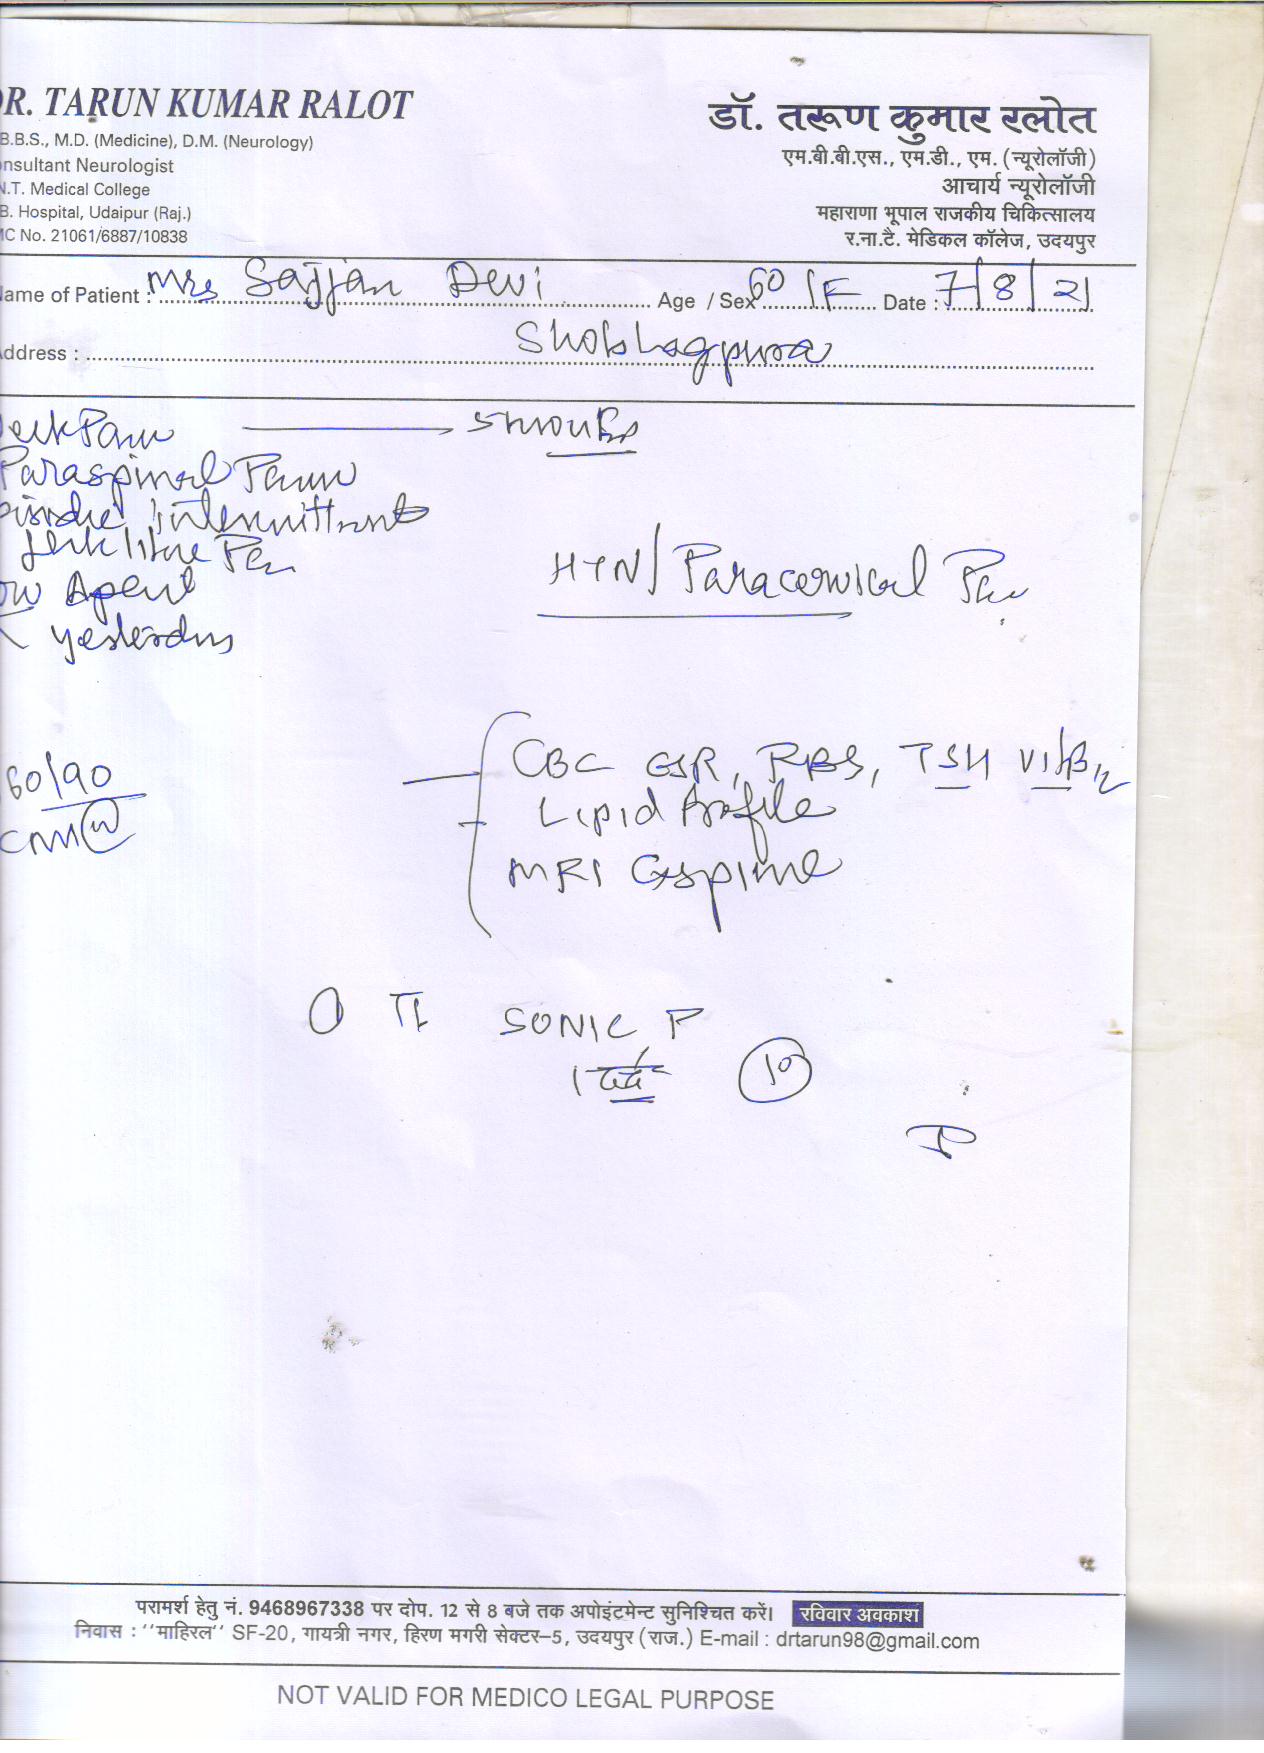 R. TARUN KUMAR RALOT
डॉ. तरूण कुमार रलोत
B.B.S., M.D. (Medicine), D.M. (Neurology)
nsultant Neurologist
N.T. Medical College
B. Hospital, Udaipur (Raj.)
MC No. 21061/6887/10838
एम.बी.बी.एस., एम.डी., एम. (न्यूरोलॉजी)
आचार्य न्यूरोलॉजी
महाराणा भूपाल राजकीय चिकित्सालय
र.ना.टै. मेडिकल कॉलेज, उदयपुर
ame of Patient : Mrs Sajjan Devi Age / Sex 60 / F Date : 7/8/21
ddress : Shobhagpura
Paraspinal
intermittent
HTN/ Paracervical
yesterday
60/90
CBC ESR, RBS, TSH Vit B12
Lipid Profile
MRI C spine
SONIC P
1 दर्द
10
परामर्श हेतु नं. 9468967338 पर दोप. 12 से 8 बजे तक अपोइंटमेन्ट सुनिश्चित करें। रविवार अवकाश
निवास : ''माहिरल'' SF-20, गायत्री नगर, हिरण मगरी सेक्टर–5, उदयपुर (राज.) E-mail : drtarun98@gmail.com
NOT VALID FOR MEDICO LEGAL PURPOSE